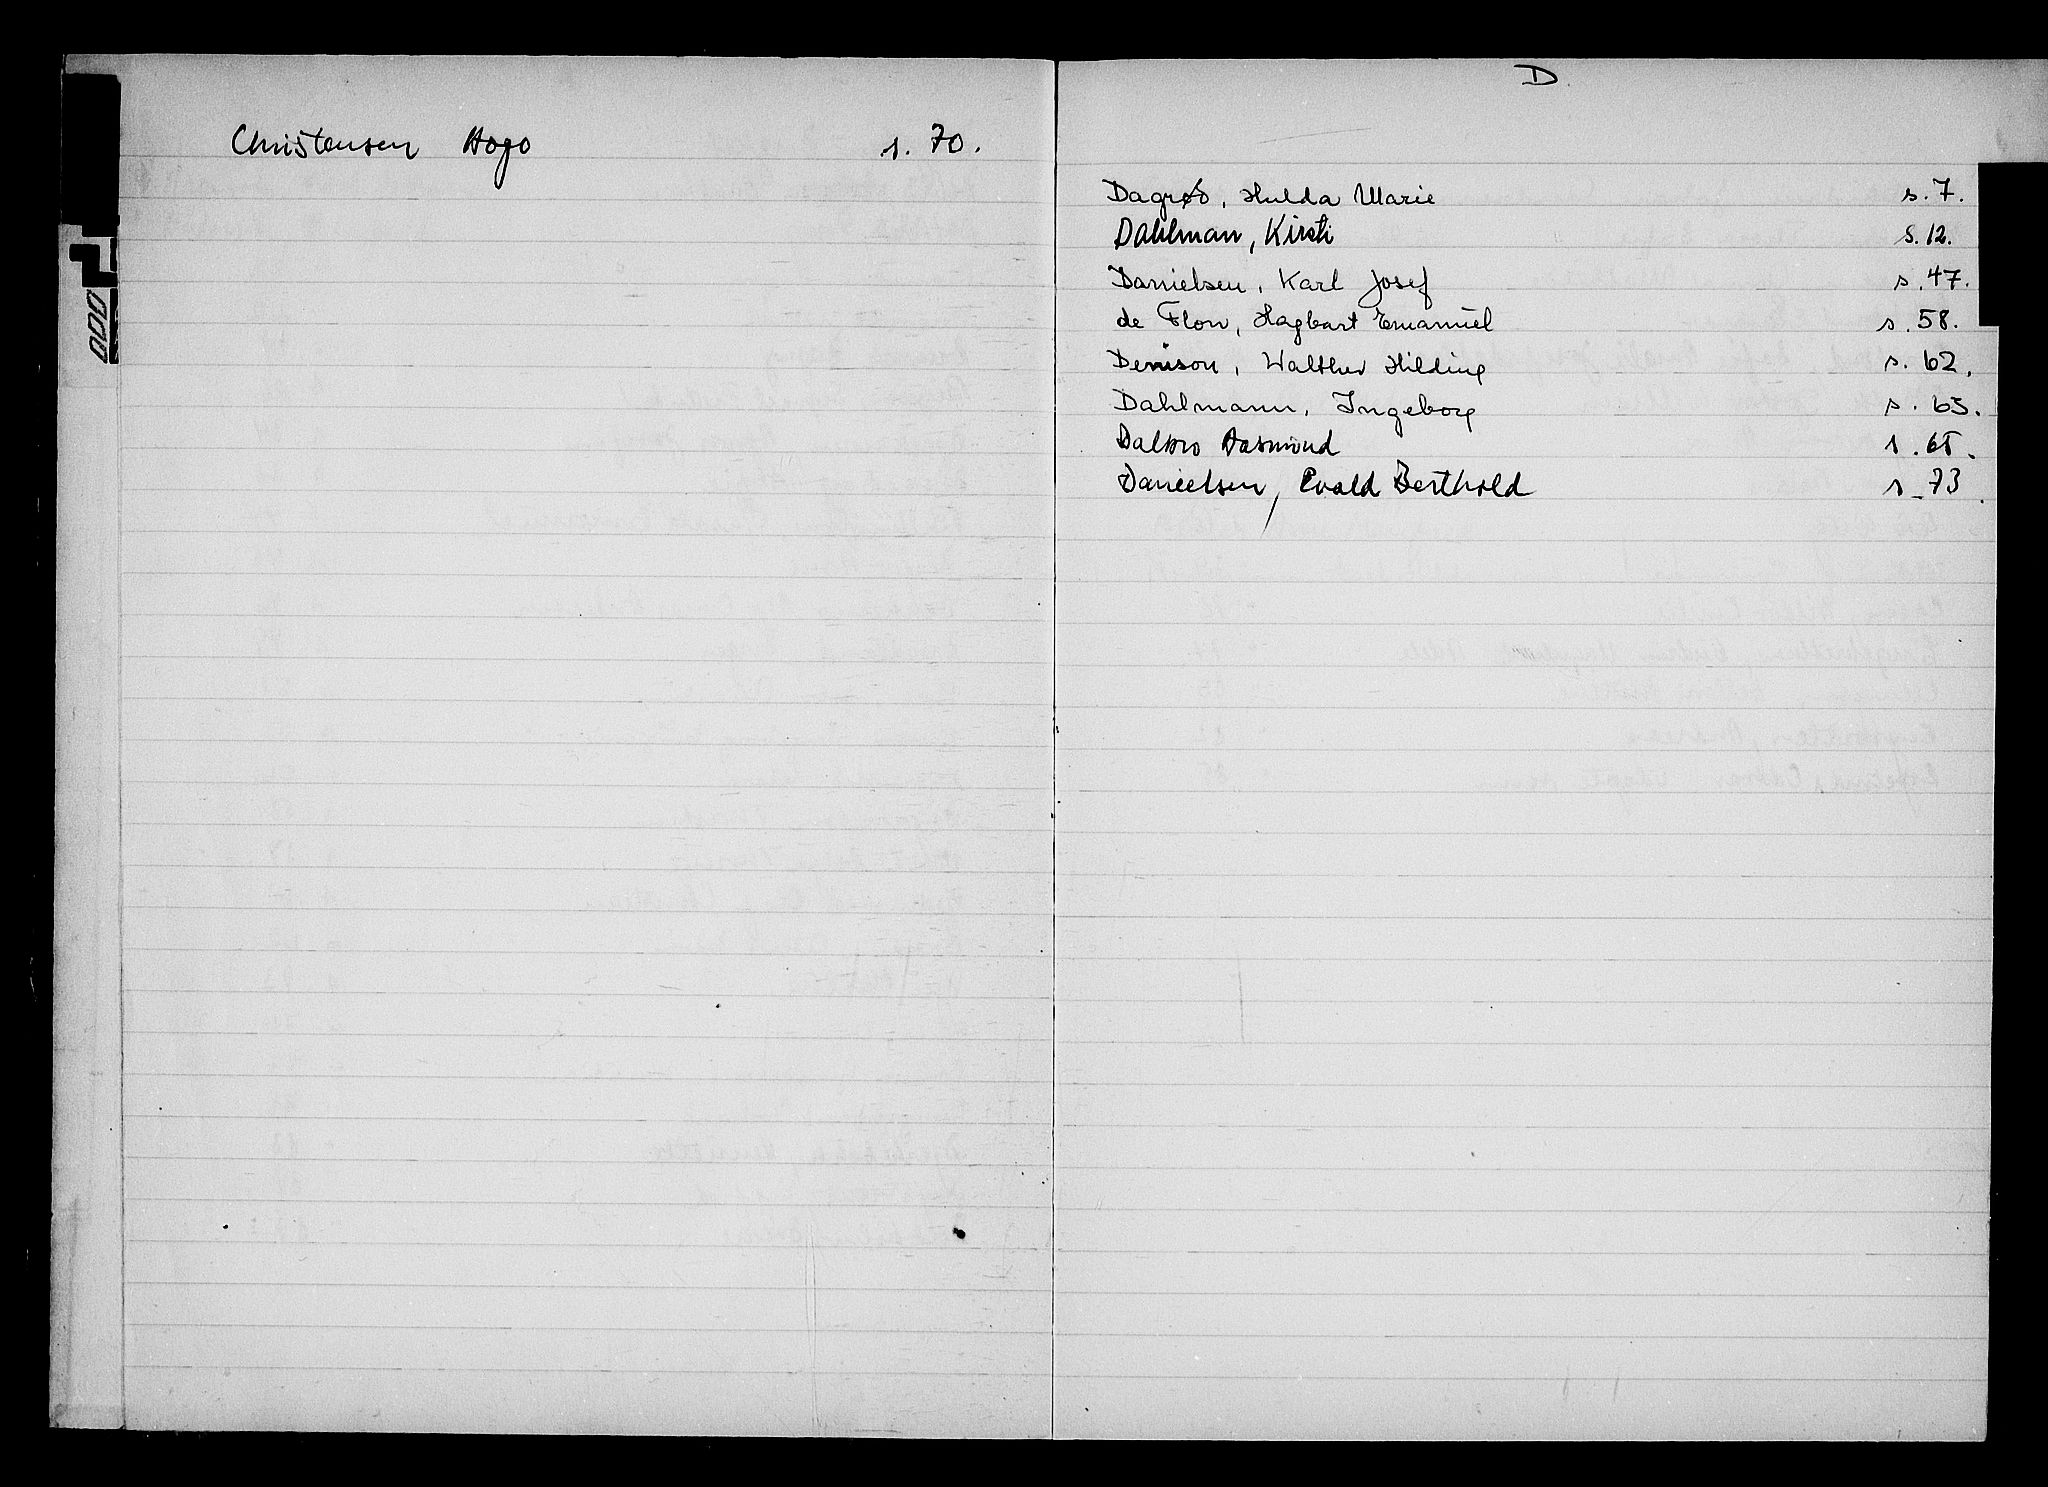 Christensen Hogo s. 70.
D.
Dagrød, Hulda Marie s. 7.
Dahlman, Kirsti s. 12.
Danielsen, Karl Josef s. 47.
de Flon, Hagbart Emanuel s. 58.
Denison, Walther Hilding s. 62.
Dahlmann, Ingeborg s. 63.
Dalbro Aasmund s. 65.
Danielsen, Evald Berthold s. 73.